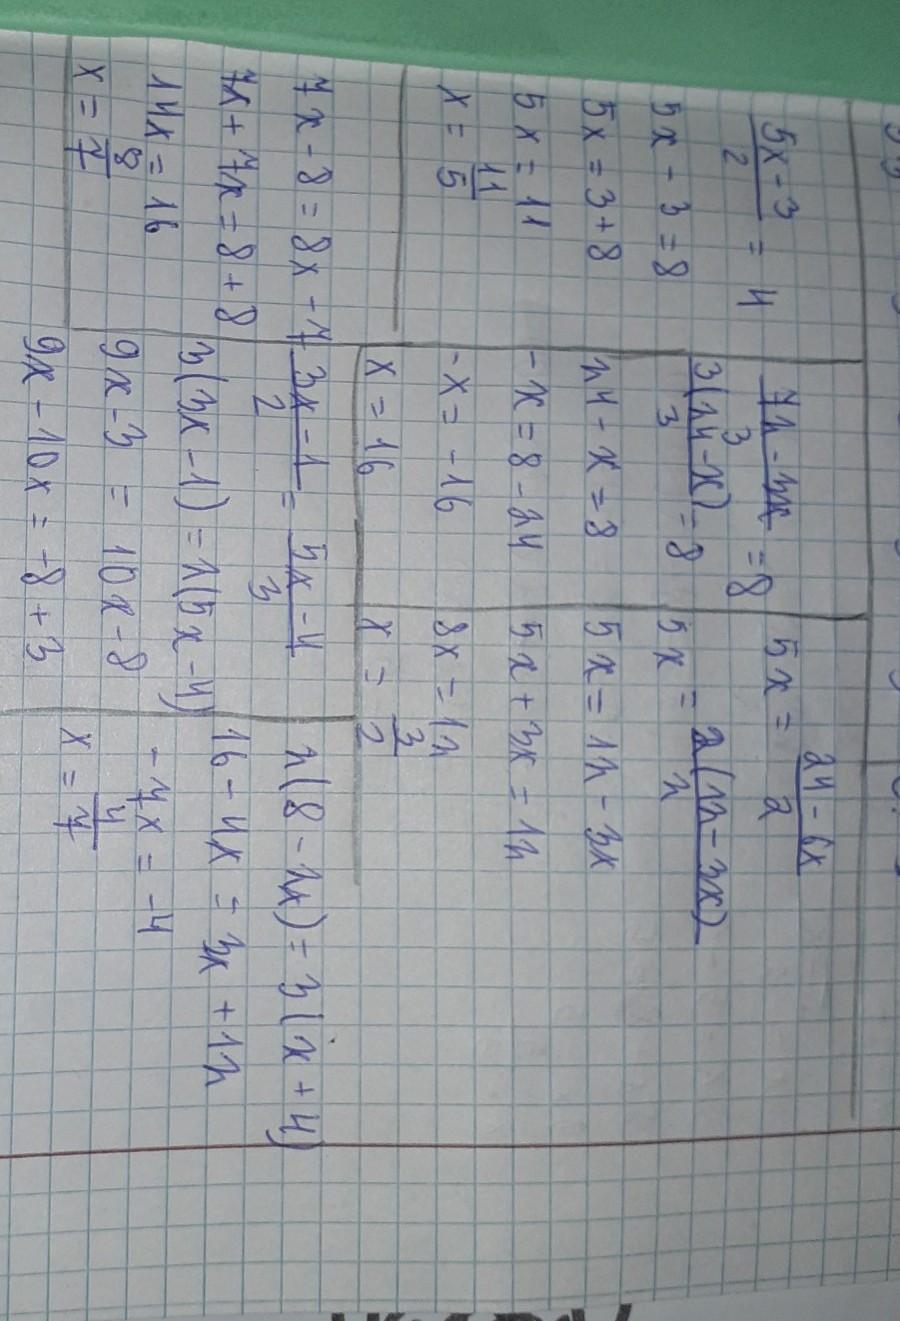 5x - 3 / 2 = 4
5x - 3 = 8
5x = 3 + 8
5x = 11
x = 11/5
72 - 3x / 3 = 8
3(24 - x) / 3 = 8
24 - x = 8
-x = 8 - 24
-x = -16
x = 16
5x = 24 - 6x / 2
5x = 2(12 - 3x) / 2
5x = 12 - 3x
5x + 3x = 12
8x = 12
x = 3/2
7x - 8 = 8x - 7
7x + 7x = 8 + 8
14x = 16
x = 8/7
3x - 1 / 2 = 5x - 4 / 3
3(3x - 1) = 2(5x - 4)
9x - 3 = 10x - 8
9x - 10x = -8 + 3
2(8 - 2x) = 3(x + 4)
16 - 4x = 3x + 12
-7x = -4
x = 4/7